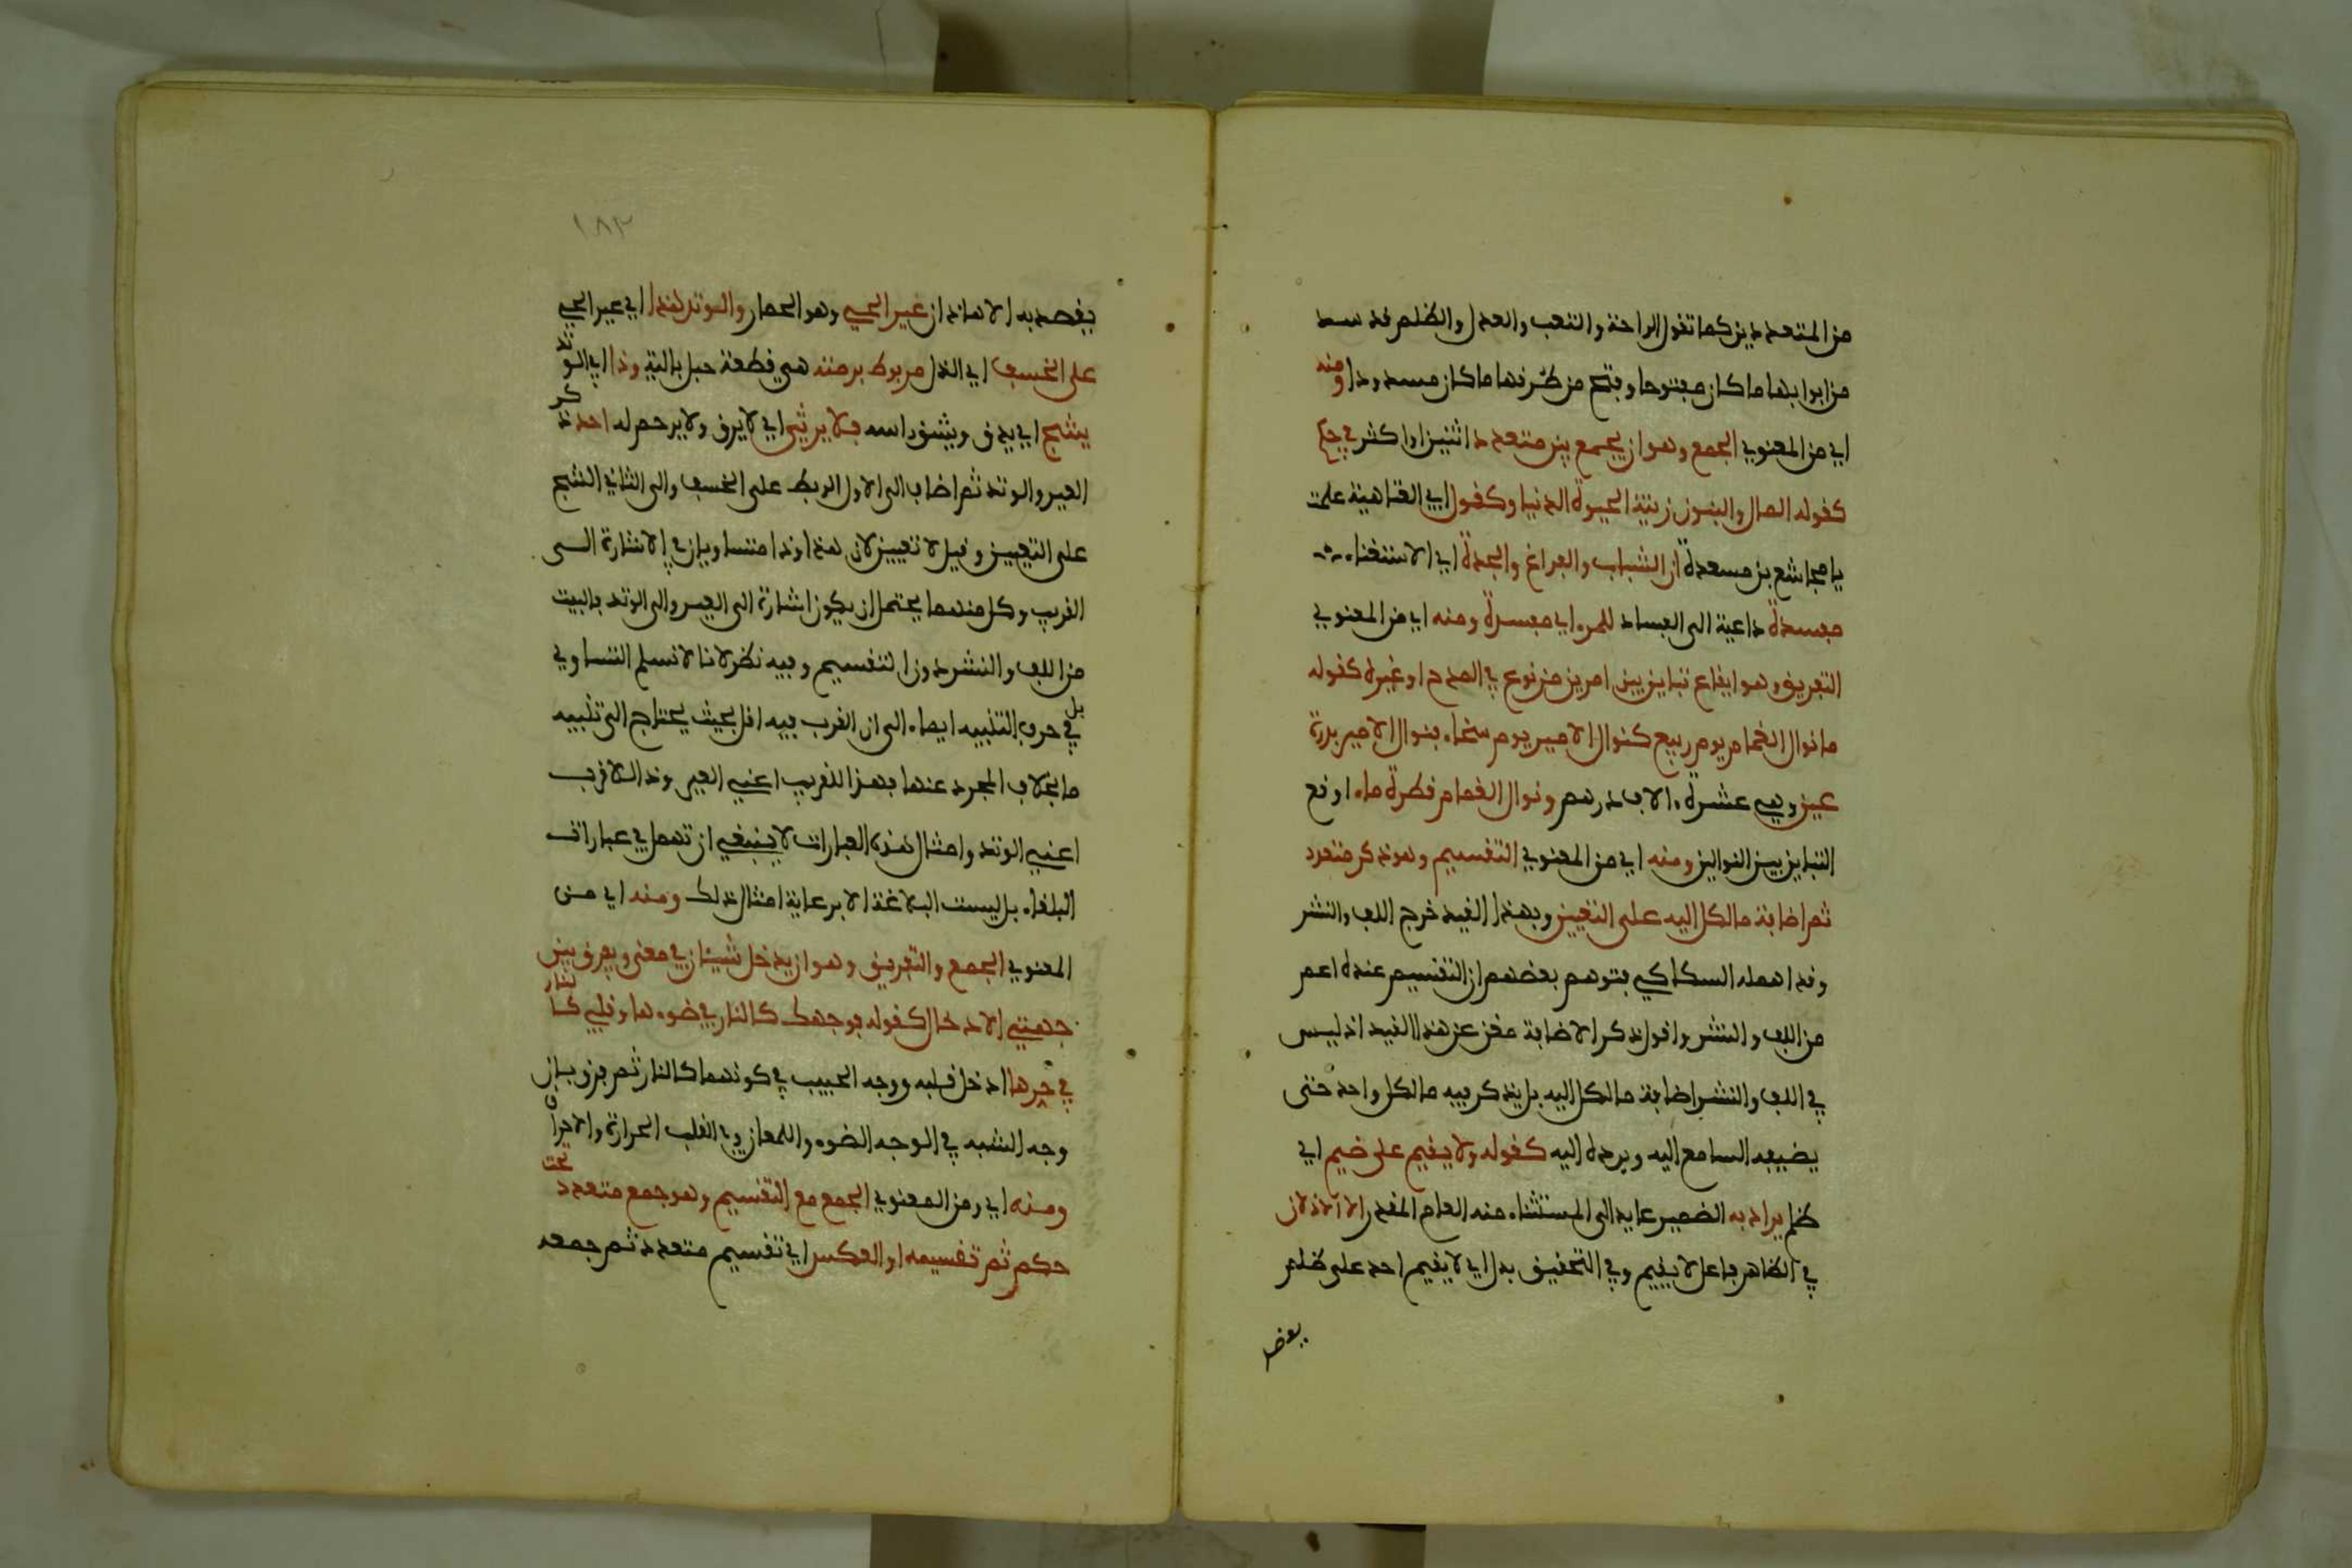 من المتعددين كما تقول الراحة والتعب والعدل والظلم قد سد
من ابوابها ما كان مفتوحا وفتح من طرفها ما كان مسدودا ومنه
اي من المعنوي الجمع وهو ان يجمع بين متعدد اثنين او اكثر في حكم
كقوله المال والبنون زينة الحيوة الدنيا وكقول ابي العتاهية علمت
يا مجاشع بن مسعدة ان الشباب والفراغ والجدة اي الاستغناء
مفسدة داعية الى الفساد للمرء اي مفسدة ومنه اي من المعنوي
التفريق وهو ايقاع تباين بين امرين من نوع في المدح او غيره كقوله
ما نوال الغمام يوم ربيع كنوال الامير يوم سخاء فنوال الامير بدرة
عين وهي عشرة الاف درهم ونوال الغمام قطرة ماء اوقع
التباين بين النوالين ومنه اي من المعنوي التقسيم وهو ذكر متعدد
ثم اضافة ما لكل اليه على التعيين وبهذا القيد خرج اللف والنشر
وقد اهمله السكاكي فتوهم بعضهم ان التقسيم عنده اعم
من اللف والنشر واقول ذكر الاضافة مغن عن هذا القيد اذ ليس
في اللف والنشر اضافة ما لكل اليه بل يذكر فيه ما لكل واحد حتى
يضيفه السامع اليه ويرده اليه كقوله ولا يقيم على ضيم اي
ظلم يراد به الضمير عايد الى المستثناء منه العام المقدر الا الاذلان
في الظاهر فاعل لا يقيم وفي التحقيق بدل اي لا يقيم احد على ظلم
بعض
١٨٣
يقصد به الا هاذان عير الحي وهو الحمار والوتد هذا اي عير الحي
على الخسف اي الذل مربوط برمته هي قطعة حبل بالية وذا اي الوتد
يشج اي يدق ويشق راسه فلا يرثي اي لا يرق ولا يرحم له احد ذكر
العير والوتد ثم اضاف الى الاول الربط على الخسف والى الثاني الشج
على التعيين وقيل لا تعيين لان هذا وذا متساويان في الاشارة الى
القريب وكل منهما يحتمل ان يكون اشارة الى العير والى الوتد فالبيت
من اللف والنشر دون التقسيم وفيه نظر لانا لا نسلم التساوي
بل في حرف التنبيه ايماء الى ان القرب فيه اقل بحيث يحتاج الى تنبيه
ما بخلاف المجرد عنها فهذا للقريب اعني العير وذا للاقرب
اعني الوتد وامثال هذه العبارات لا ينبغي ان تهمل في عبارات
البلغاء بل ليست البلاغة الا برعاية امثال ذلك ومنه اي من
المعنوي الجمع والتفريق وهو ان يدخل شيئان في معنى ويفرق بين
جهتي الادخال كقوله فوجهك كالنار في ضوءها وقلبي كالنار
في حرها ادخل قلبه ووجه الحبيب في كونهما كالنار ثم فرق بان
وجه الشبه في الوجه الضوء واللمعان وفي القلب الحرارة والاحراق
ومنه اي ومن المعنوي الجمع مع التقسيم وهو جمع متعدد تحت
حكم ثم تقسيمه او العكس اي تقسيم متعدد ثم جمعه